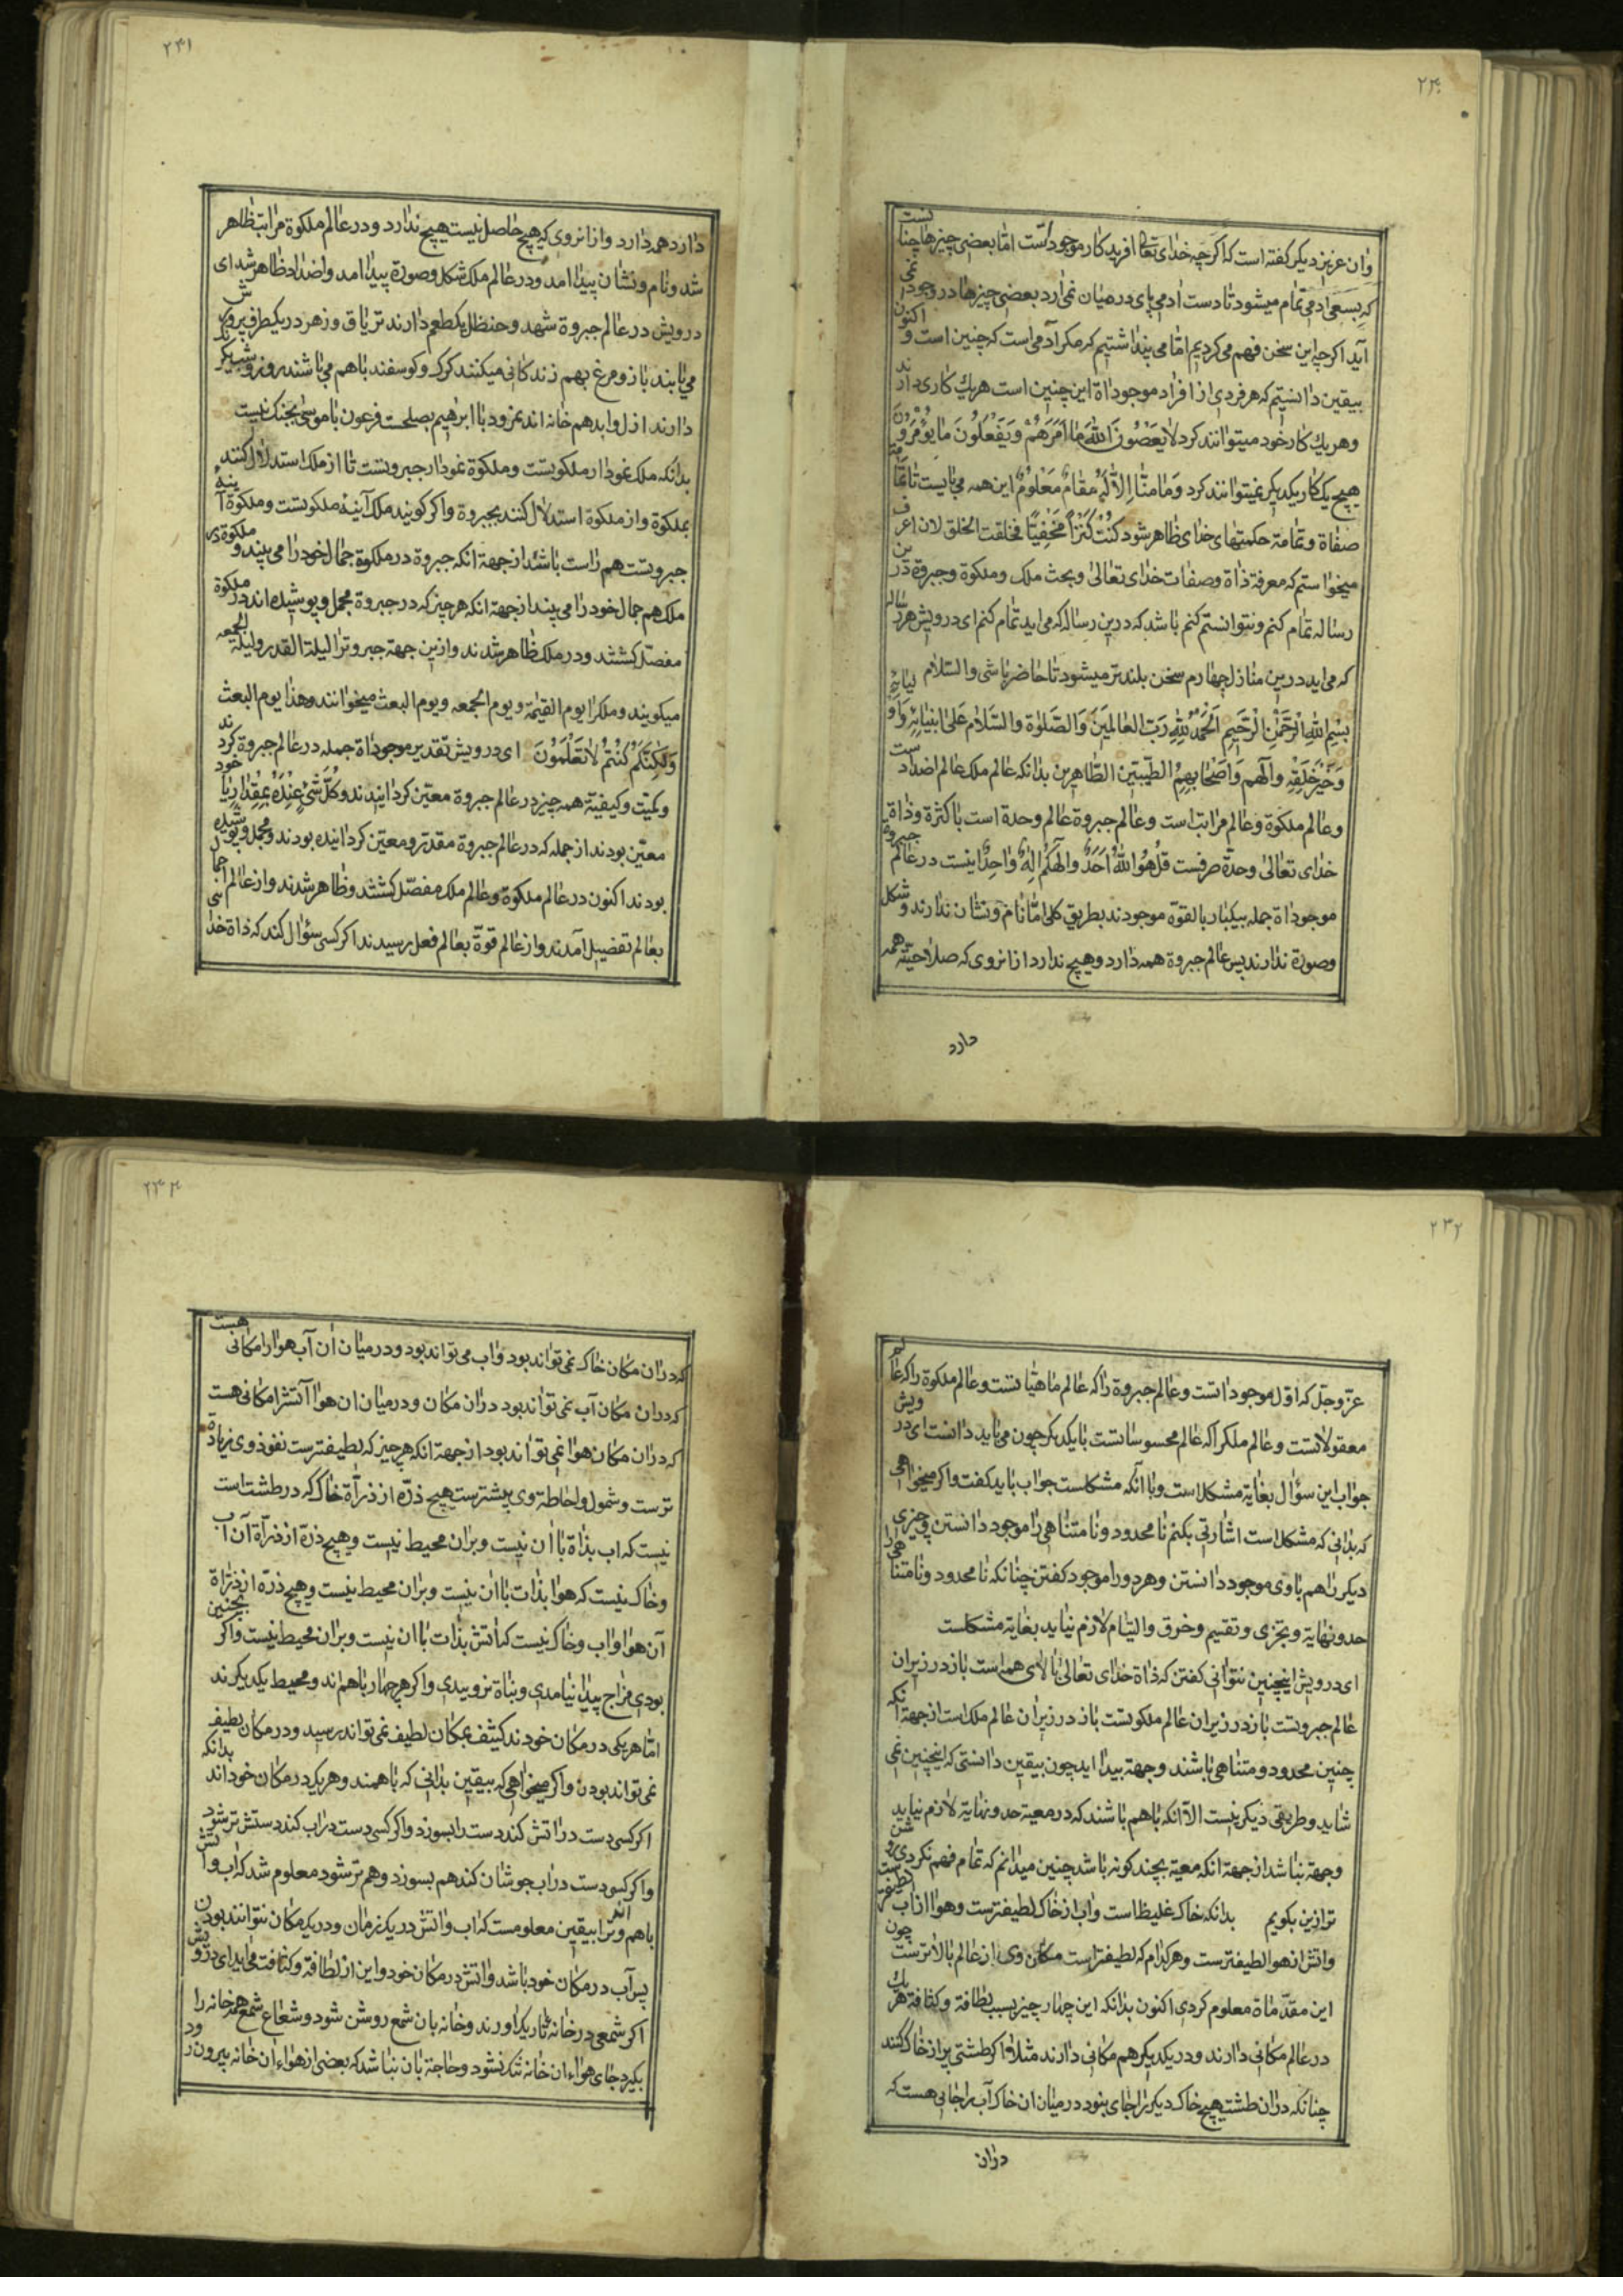 ۲۴۰
وان عزیز دیکر کفته است که اکرچه خدای تعالی افریدکار موجوداتست اما بعضی چیزها چنانست
که بسعی ادمی تمام میشود تا دست ادمی پای درمیان نمی ارد بعضی چیزها در وجود نمی
آید اکرچه این سخن فهم می کردیم اما می پنداشتیم که مکر آدمی است که چنین است و اکنون
بیقین دانستیم که هر فردی از افراد موجوداة این چنین است هر یك کاری دارند
وهر یك کار خود میتوانند کرد لا یعصون الله ما امرهم ویفعلون ما یؤمرون
هیچ یک کار یکدیکر نمیتوانند کرد وما منا الا له مقام معلوم این همه می بایست تا تمامة
صفاة وتمامة حکمتهای خدای ظاهر شود کنت کنزا مخفیا فخلقت الخلق لان اعرف
میخواستم که معرفة ذاة وصفات خدای تعالی وبحث ملک وملکوة وجبروة درین
رساله تمام کنم ونتوانستم کنم باشد که درین رساله که می اید تمام کنم ای درویش هر رساله
که می اید درین منازل چهارم سخن بلندتر میشود تا حاضر باشی والسلام
بسم الله الرحمن الرحیم الحمد لله رب العالمین والصلوة والسلام علی انبیائه واولیائه
وخیر خلقه وآلهم واصحابهم الطیبین الطاهرین بدانکه عالم ملک عالم اضدادست
وعالم ملکوة وعالم مراتب است وعالم جبروة عالم وحدة است با کثرة وذاة
خدای تعالی وحدة صرفست قل هو الله احد والهکم اله واحد اینست در عالم جبروة
موجوداة جمله بیکبار بالقوة موجودند بطریق کلی اما نام ونشان ندارند وشکل
وصورة ندارند پس عالم جبروة همه دارد وهیچ ندارد ازانروی که صلاحیة همه
دارد
۲۴۱
دارد همه دارد وازانروی که هیچ حاصل نیست هیچ ندارد ودر عالم ملکوة مراتب ظاهر
شد ونام ونشان پیدا امد ودر عالم ملک شکل وصورة پیدا امد واضداد ظاهر شد ای
درویش در عالم جبروة شهد وحنظل یکطعم دارند تریاق وزهر در یکظرف پرورش
می یابند باز ومرغ بهم زندکانی میکنند کرک وکوسفند باهم می باشند روز وشب یکرنك
دارند ازل وابد هم خانه اند نمرود با ابرهیم بصلحست فرعون با موسی بجنک نیست
بدانکه ملک نمودار ملکوتست وملکوة نمودار جبروتست تا از ملک استدلال کنند
بملکوة واز ملکوة استدلال کنند بجبروة واکر کویند ملک آینهٔ ملکوتست وملکوة آینهٔ
جبروتست هم راست باشد از جهة انکه جبروة در ملکوة جمال خود را می بیند وملکوة در
ملک هم جمال خود را می بیند از جهة انکه هرچیز که در جبروة مجمل وپوشیده اند در ملکوة
مفصل کشتند ودر ملک ظاهر شدند وازین جهة جبروترا لیلة القدر ولیلة الجمعه
میکویند وملکرا یوم القیمة ویوم الجمعه ویوم البعث میخوانند وهذا یوم البعث
ولکنکم کنتم لا تعلمون ای درویش تقدیر موجوداة جمله در عالم جبروة کردند
وکمیت وکیفیة همه چیز در عالم جبروة معین کردانیدند وکل شیء عنده بمقدار یا خود
معین بودند از جمله که در عالم جبروة مقدر ومعین کردانیده بودند ومجمل وپوشیده
بودند اکنون در عالم ملکوة وعالم ملک مفصل کشتند وظاهر شدند واز عالم اجمال
بعالم تفضیل آمدند واز عالم قوة بعالم فعل رسیدند اکر کسی سؤال کند که ذاة خدا
۲۳۲
عز وجل که اول موجوداتست وعالم جبروة را که عالم ماهیاتست وعالم ملکوة را که عالم
معقولاتست وعالم ملکرا که عالم محسوساتست با یکدیکر چون می باید دانست ای درویش
جواب این سؤال بغایة مشکل است وبا آنکه مشکلست جواب باید کفت واکر میخواهی
که بدانی که مشکل است اشارتی بکنم نامحدود ونامتناهی را موجود دانستن وچیزی
دیکر را هم با وی موجود دانستن وهر دو را موجود کفتن چنانکه نامحدود ونامتناهی را
حد ونهایة وتجزی وتقسیم وخرق والتیام لازم نیاید بغایة مشکلست
ای درویش اینچنین نتوانی کفتن که ذاة خدای تعالی بالای همه است باز در زیر ان
عالم جبروتست باز در زیر ان عالم ملکوتست باز در زیر ان عالم ملک است از جهة انکه
چنین محدود ومتناهی باشند وجهة پیدا اید چون بیقین دانستی که اینچنین نمی
شاید وطریقی دیکر نیست الا آنکه باهم باشند که در معیة حد ونهایة لازم نیاید
وجهة نباشد از جهة انکه معیة بچند کونه باشد چنین میدانم که تمام فهم نکردی
ترازین بکویم بدانکه خاک غلیظ است واب از خاک لطیفترست وهوا از اب لطیفترست
واتش از هوا لطیفترست وهر کدام که لطیفترست مکان وی از عالم بالاترست چون
این مقدماة معلوم کردی اکنون بدانکه این چهار چیز بسبب لطافة وکثافة هر یك
در عالم مکانی دارند ودر یکدیکر هم مکانی دارند مثلا اکر طشتی پر از خاک کنند
چنانکه دران طشت هیچ خاک دیکر را جای نبود درمیان ان خاک آب را جایی هست که
دران
۲۳۳
که دران مکان خاک نمی تواند بود واب می تواند بود ودرمیان ان آب هوا را مکانی هست
که دران مکان آب نمی تواند بود دران مکان ودرمیان ان هوا آتشرا مکانی هست
که دران مکان هوا نمی تواند بود از جهة انکه هرچیز که لطیفترست نفوذ وی زیادة
ترست وشمول واحاطة وی بیشترست هیچ ذره از ذراة خاک که در طشت است
نیست که اب بذاة با ان نیست وبران محیط نیست وهیچ ذره از ذراة آن اب
وخاک نیست که هوا بذات با ان نیست وبران محیط نیست وهیچ ذره از ذراة
آن هوا واب وخاک نیست که اتش بذات با ان نیست وبران محیط نیست واکر نچنین
بودی مزاج پیدا نیامدی ونباة نروییدی واکر هر چهار باهم اند ومحیط یکدیکرند
اما هر یکی در مکان خودند کثیف بمکان لطیف نمی تواند رسید ودر مکان لطیف
نمی تواند بودن واکر میخواهی که بیقین بدانی که باهمند وهر یک در مکان خوداند بدانکه
اکر کسی دست در اتش کند دست را بسوزد واکر کسی دست در اب کند دستش تر شود
واکر کسی دست در اب جوشان کند هم بسوزد وهم تر شود معلوم شد که اب واتش
باهم اند وترا بیقین معلومست که اب واتش در یک زمان ودر یک مکان نتوانند بودن
پس آب در مکان خود باشد واتش در مکان خود واین از لطافة وکثافت می اید ای درویش
اکر شمعی در خانهٔ تاریک اورند وخانه بان شمع روشن شود وشعاع شمع همه خانه را
بکیرد جای هواء ان خانه تنک نشود وحاجة بان نباشد که بعضی از هواء ان خانه بیرون رود